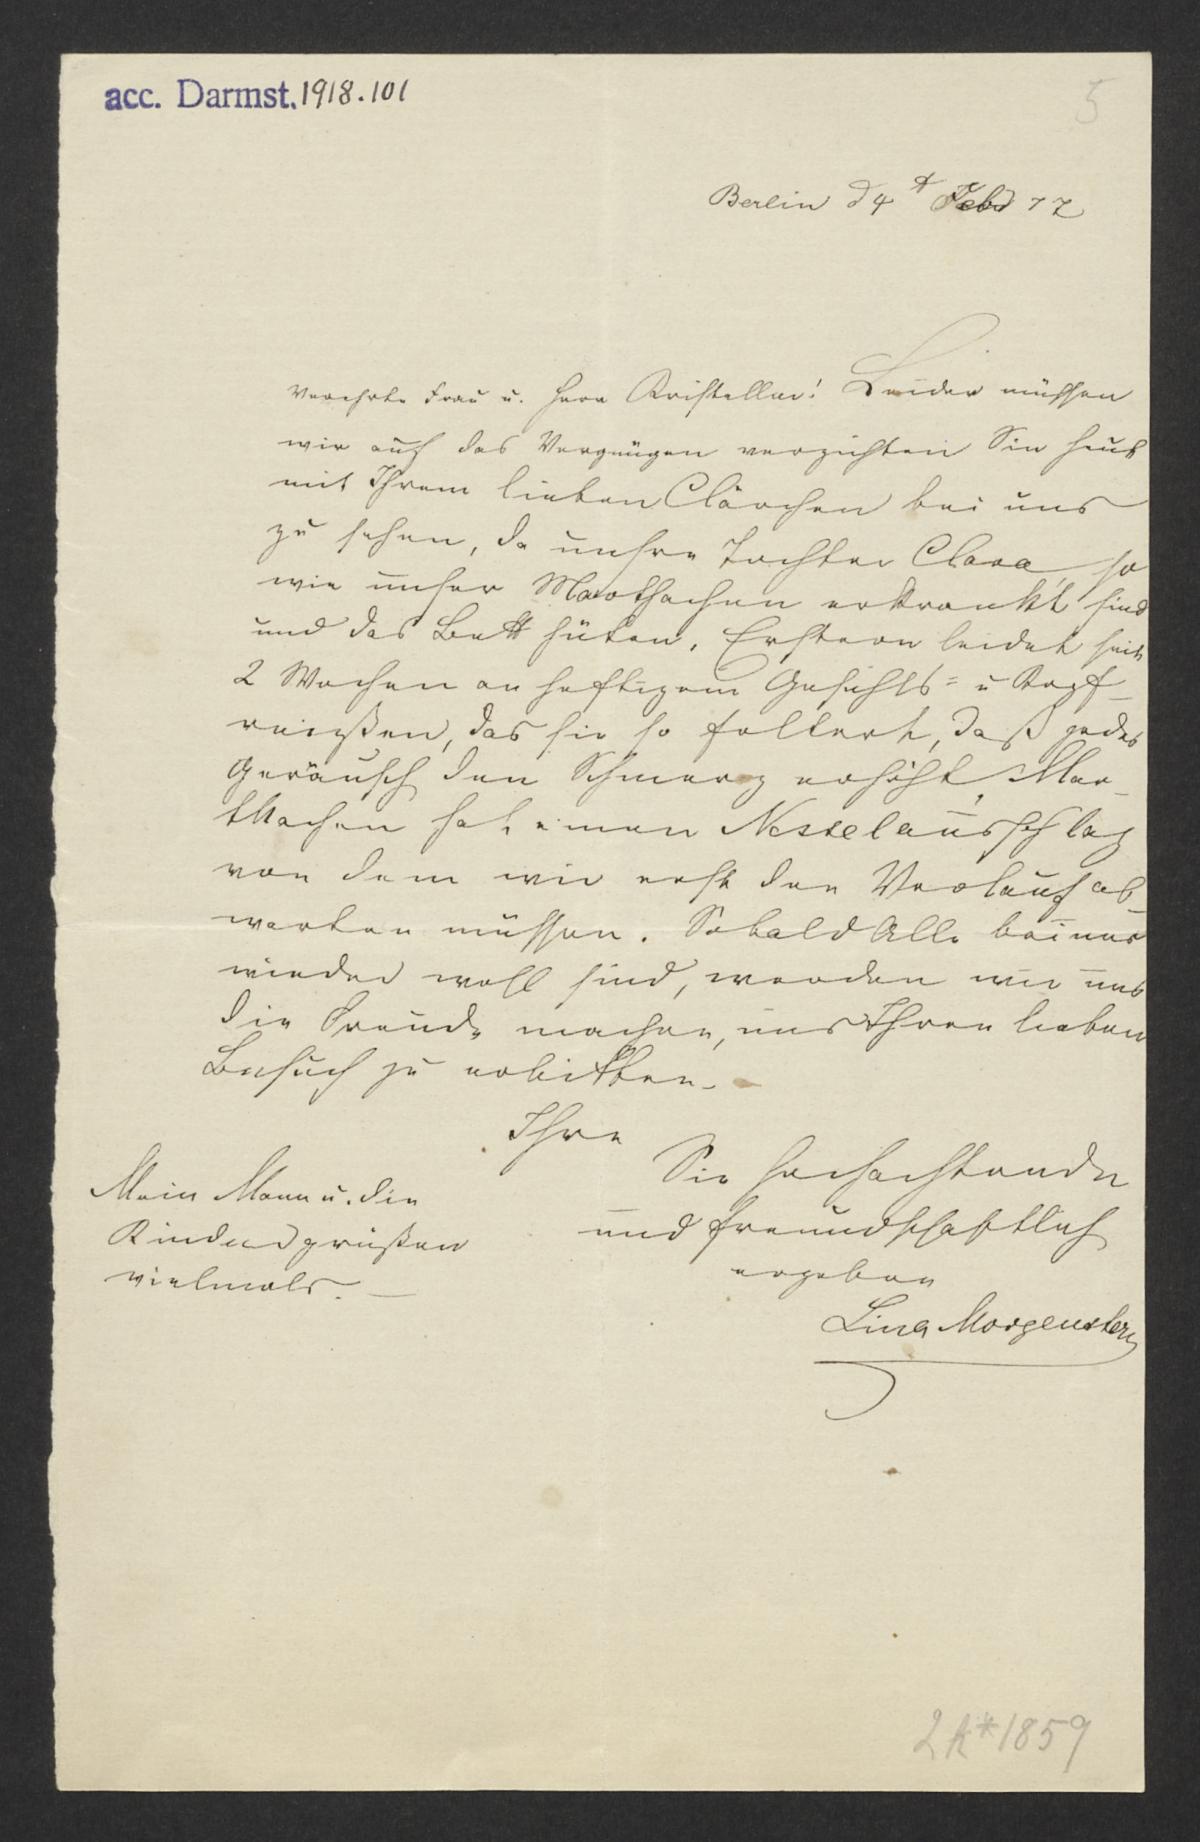 acc. Darmst. 1918.101
5
Berlin d 4t Febr 77
Verehrte Frau u. Herr Kristeller! Leider müssen
wir auf das Vergnügen verzichten Sie heut
mit Ihrem lieben Clärchen bei uns
zu sehen, da unsre Tochter Clara so
wie unser Marthachen erkrankt sind
und das Bett hüten. Erstere leidet seit
2 Wochen an heftigem Gesichts= u Kopf-
reißen, das sie so foltert, daß jedes
Geräusch den Schmerz erhöht, Mar-
thachen hat einen Nesselausschlag
von dem wir erst den Verlauf ab-
warten müssen. Sobald Alle bei uns
wieder wohl sind, werden wir uns
die Freude machen, uns Ihren lieben
Besuch zu erbitten.
Ihre
Sie hochachtende
und freundschaftlich
ergeben
Lina Morgenstern
Mein Mann u. die
Kinder grüßen
vielmals. —
2k*1859